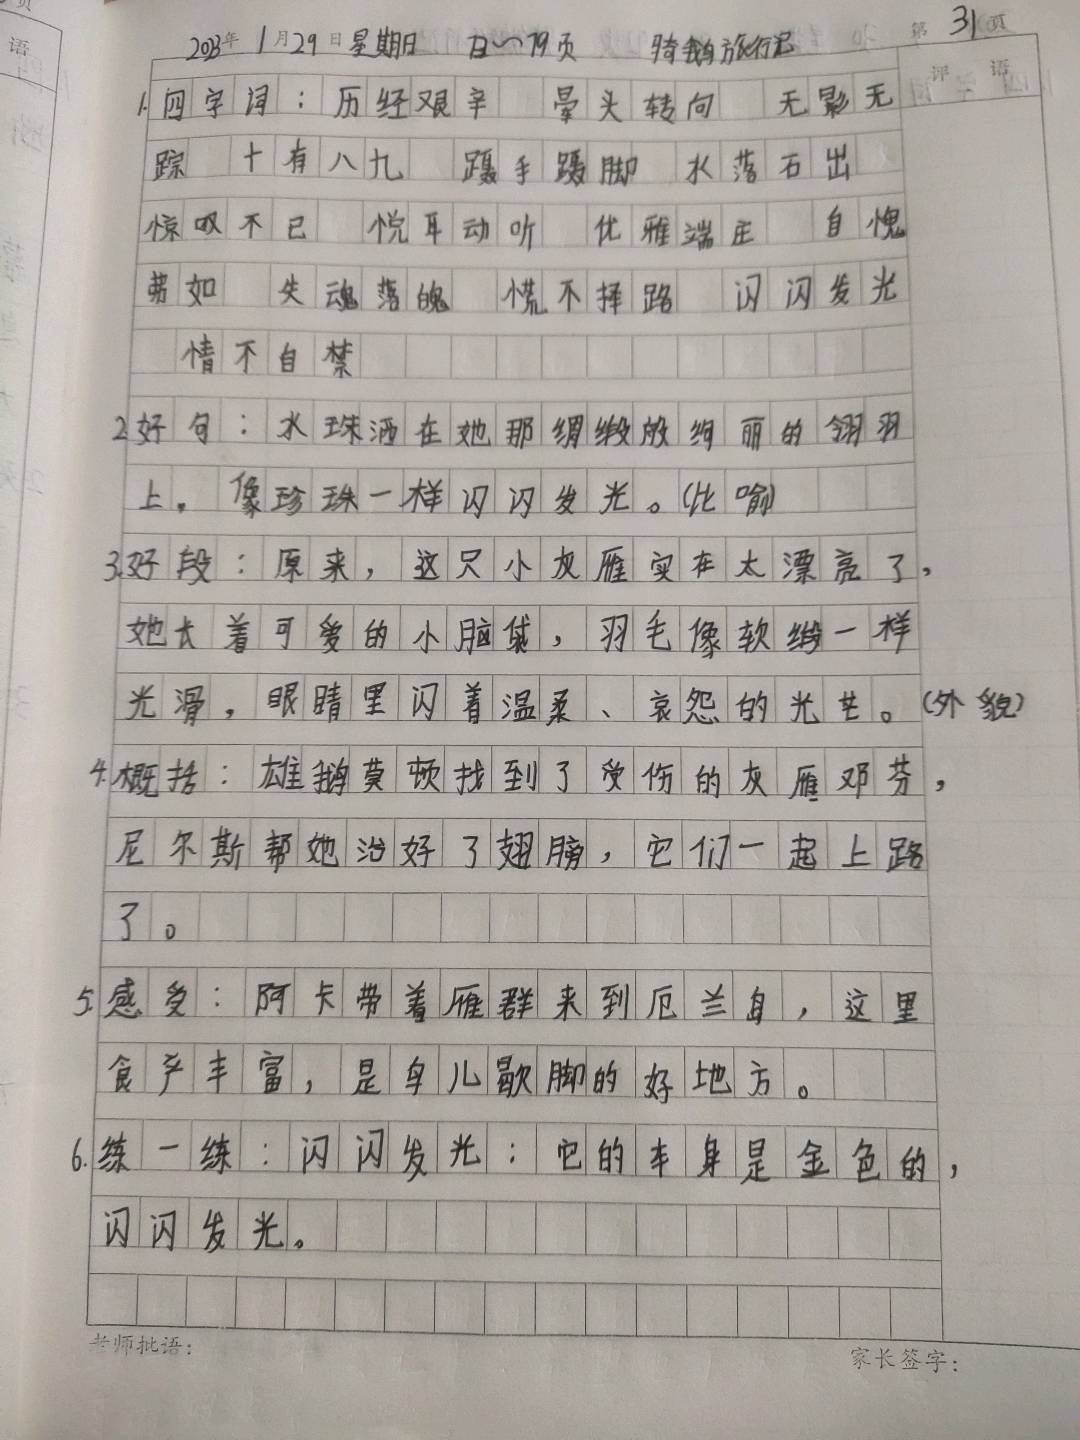 2023年1月29日星期日 ~79页 骑鹅旅行记 第31页
评语
1.四字词：历经艰辛 晕头转向 无影无
踪 十有八九 蹑手蹑脚 水落石出
惊叹不已 悦耳动听 优雅端庄 自愧
弗如 失魂落魄 慌不择路 闪闪发光
情不自禁
2.好句：水珠洒在她那绸缎般绚丽的翎羽
上，像珍珠一样闪闪发光。(比喻)
3.好段：原来，这只小灰雁实在太漂亮了，
她长着可爱的小脑袋，羽毛像软缎一样
光滑，眼睛里闪着温柔、哀怨的光芒。(外貌)
4.概括：雄鹅莫顿找到了受伤的灰雁邓芬，
尼尔斯帮她治好了翅膀，它们一起上路
了。
5.感受：阿卡带着雁群来到厄兰岛，这里
食产丰富，是鸟儿歇脚的好地方。
6.练一练：闪闪发光：它的车身是金色的，
闪闪发光。
老师批语：
家长签字：